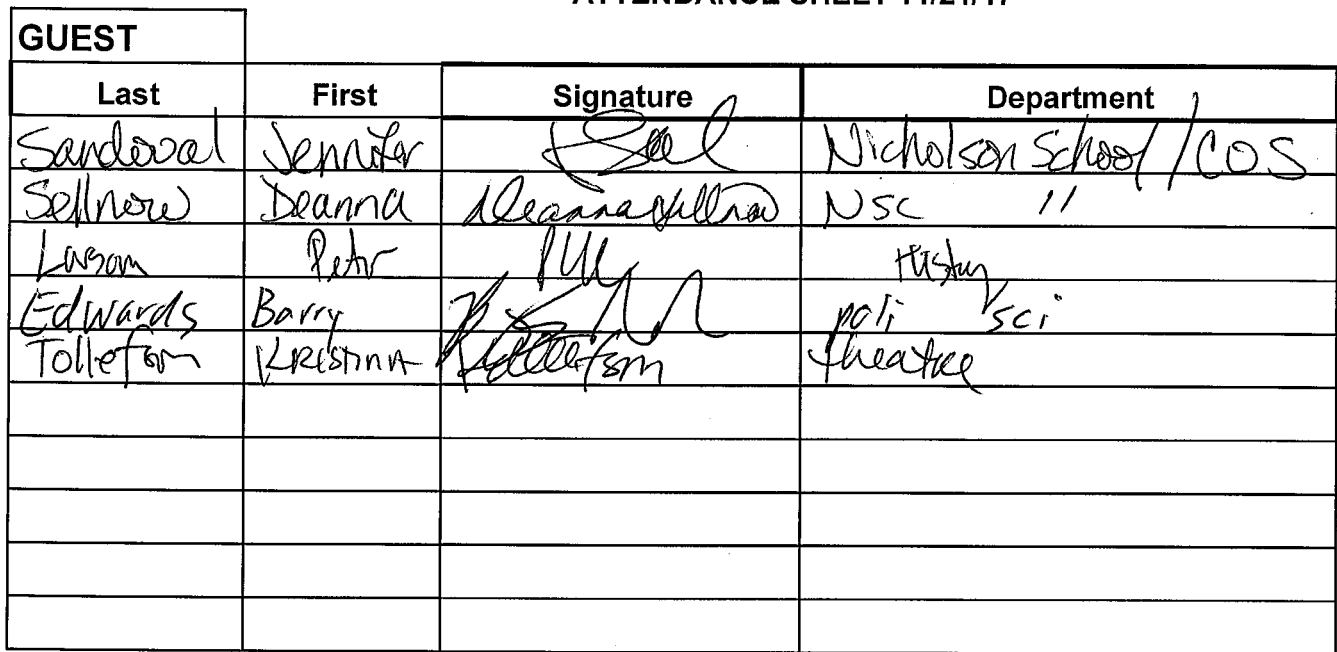 ATTENDANCE SHEET 11/21/17
GUEST
Last First Signature Department
Sandoval Jennifer Nicholson School / COS
Sellnow Deanna Deanna Sellnow NSC "
Larson Peter History
Edwards Barry poli sci
Tollefson Kristina KTollefson theatre